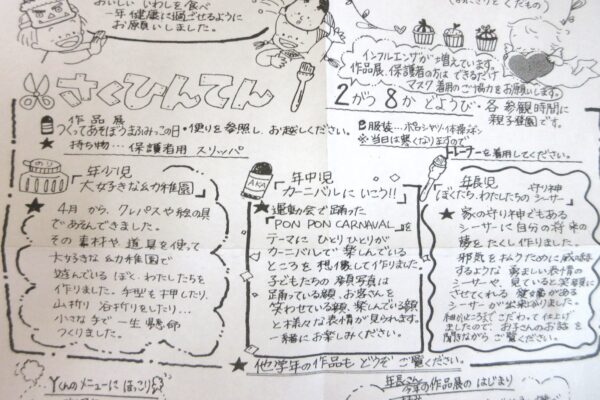 おいしい いわしを 食べ
一年 健康に過ごせるように
お願いしました。
インフルエンザが増えています。
作品展、保護者の方は できるだけ
マスク着用のご協力をお願いします。
さくひんてん
2がつ 8か どようび・各参観時間に
親子登園です。
作品展
つくってあそぼうまふみっこの日・便りを参照し、お越しください。
★ 持ち物…保護者用 スリッパ
服装…ポロシャツ・体操ズボン
※当日は寒くなりますので
トレーナーを着用してください。
のり
年少児
大好きな幼稚園
★ 4月 から、クレパスや絵の具
であそんできました。
その 素材や 道具を使って
大好きな 幼稚園で
遊んでいる ぼく・わたしたちを
作りました。手型も押したり、
山折り 谷折りをしたり…
小さな手で 一生懸命
つくりました。
AKA
年中児
カーニバルにいこう!!
★ 運動会で踊った
『PON PON CARNAVAL』を
テーマに ひとりひとりが
カーニバルで 楽しんでいる
ところを 想像して作りました。
子どもたちの 顔写真は
踊っている顔、お客さんを
笑わせている顔、楽しんでいる顔
と様々な表情が見られます。
一緒にお楽しみください。
年長児
ぼくたち、わたしたちの 守り神
シーサー
★ 家の守り神でもある
シーサーに自分の将来の
夢をたくし作りました。
邪気を払うために威嚇
するような 勇ましい表情の
シーサーや、見ていると笑顔に
させてくれる 愛嬌がある
シーサーが出来あがりました。
細かいところまでこだわって仕上げ
ましたので、お子さんのお話を
聞きながら ご覧ください。
★ 他学年の作品も どうぞ ご覧ください。
Yくんのメニューに ほっこり
年長さん
今年の作品展の はじまり